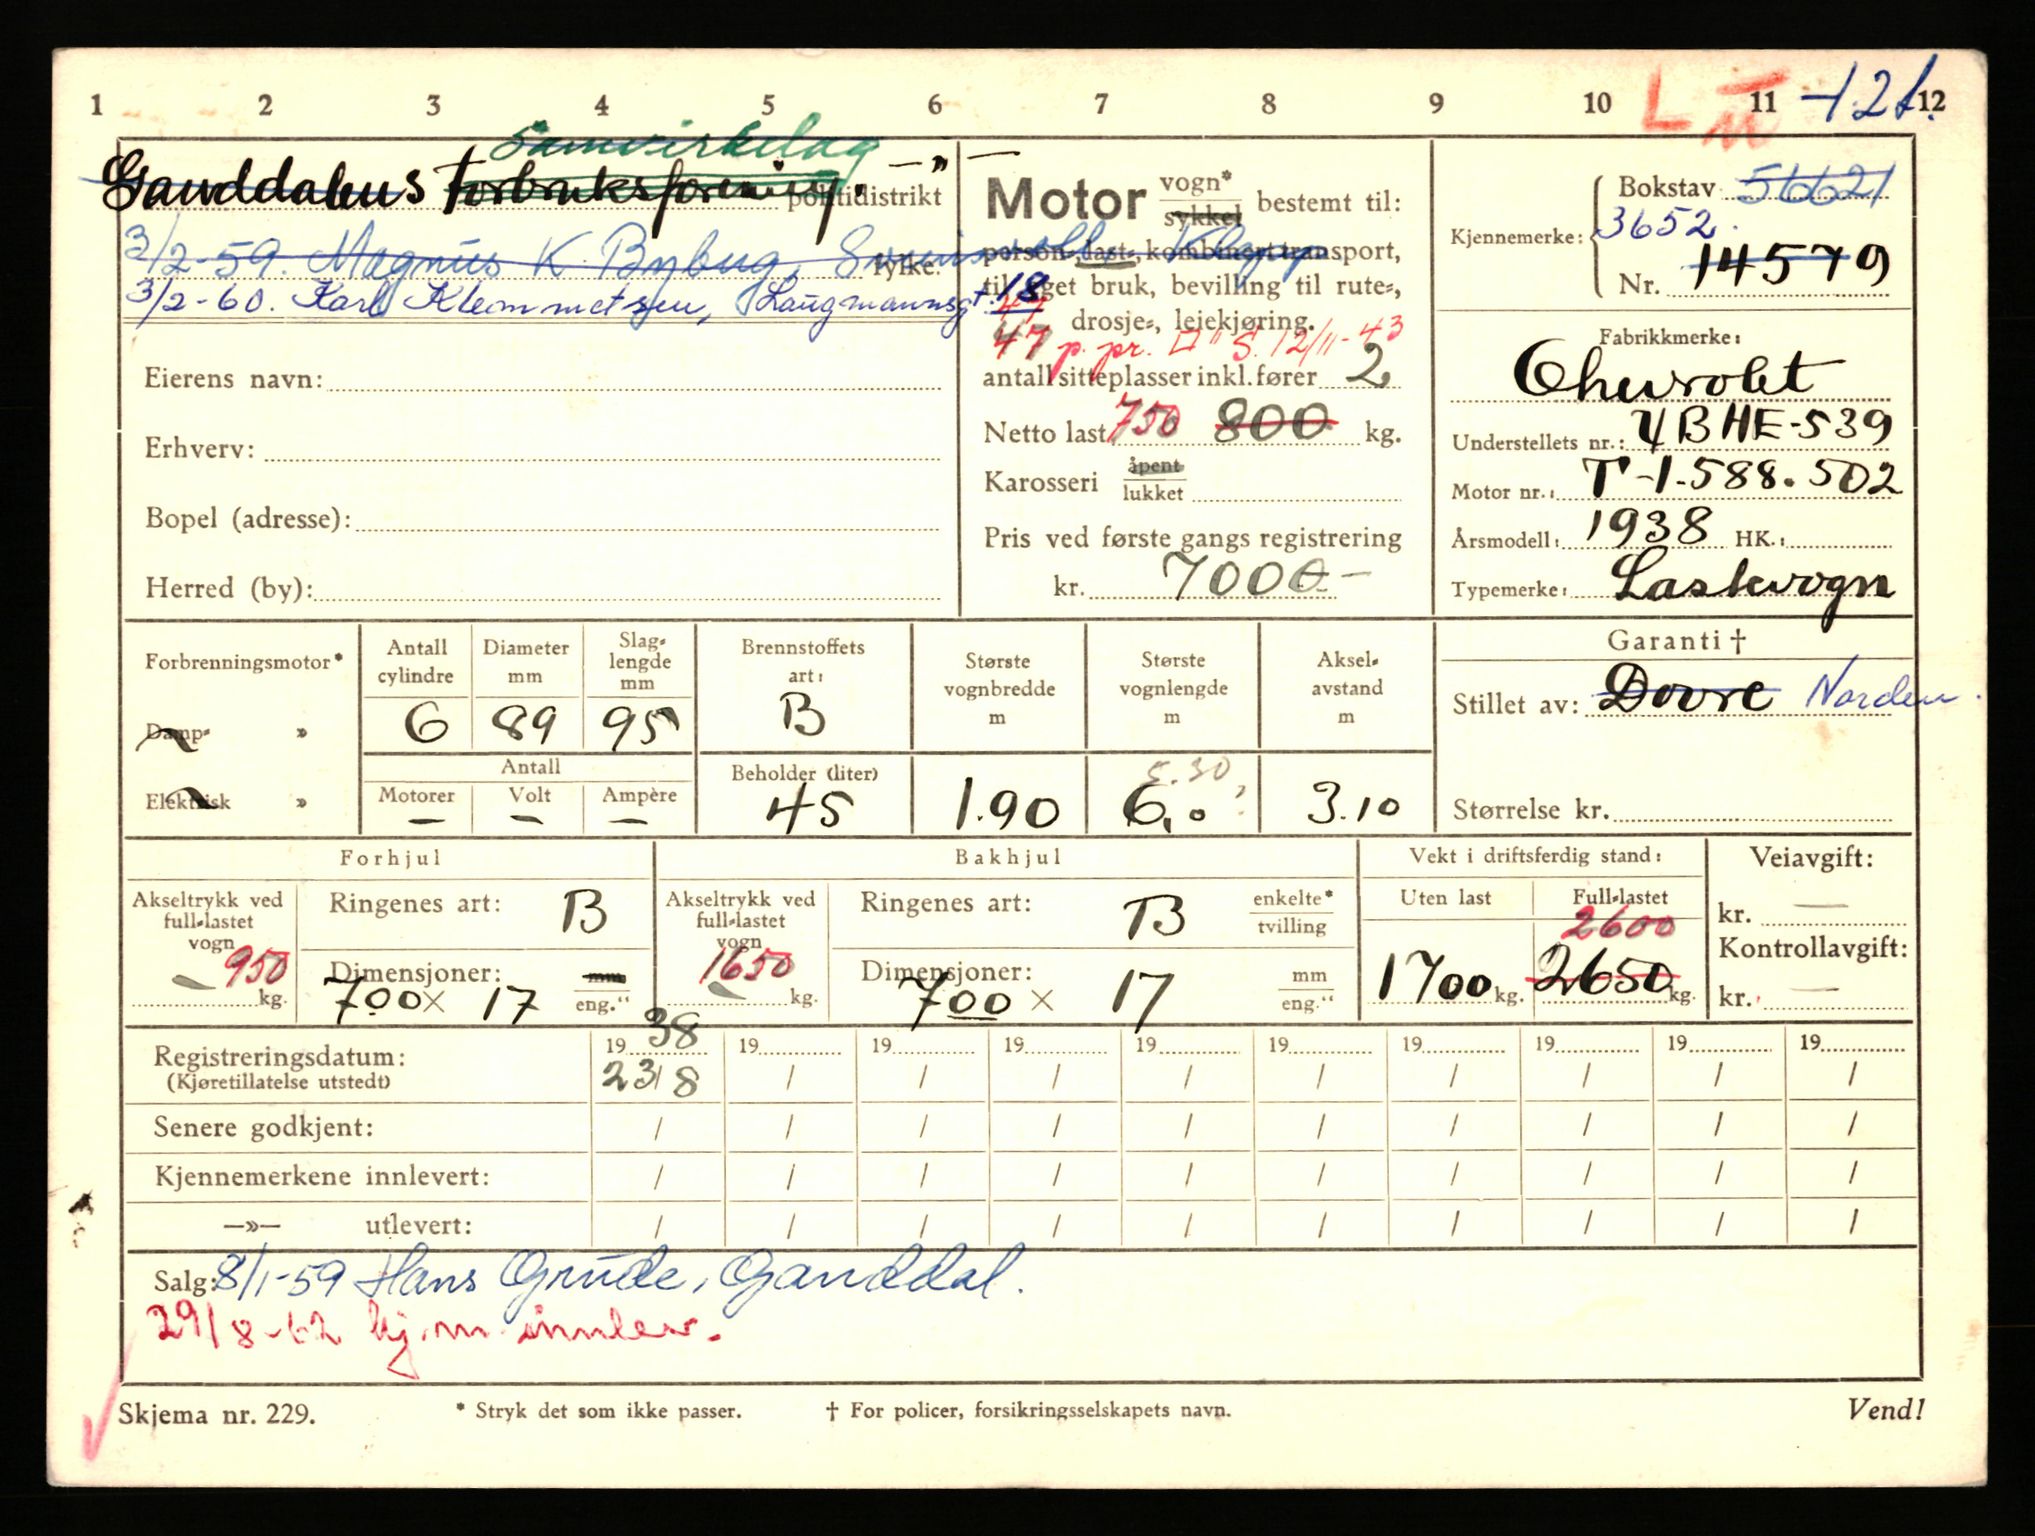 1 2 3 4 5 6 7 8 9 10 11 12
L
-1.21.
Samvirkelag
Ganddalens Forbruksforening. —"—
politidistrikt
3/2-59. Magnus K. Bybug, Klepp
fylke.
3/2-60. Karl Klemmetsen, Laugmannsgt. 18
Eierens navn:
Erhverv:
Bopel (adresse):
Herred (by):
Motor vogn* sykkel bestemt til:
person-, last-, kombinert transport,
til eget bruk, bevilling til rute-,
drosje-, leiekjøring.
47 p. pr. S. 12/11-43
antall sitteplasser inkl. fører 2
Netto last 750 800 kg.
Karosseri åpent lukket
Pris ved første gangs registrering
kr. 7000-
Kjennemerke: Bokstav 56621
3652.
Nr. 14579
Fabrikkmerke:
Chevrolet
Understellets nr.: 4 B HE-539
Motor nr.: T-1.588.502
Årsmodell: 1938 HK.:
Typemerke: Lastevogn
Garanti †
Stillet av: Dovre Norden
Størrelse kr.
Forbrenningsmotor*
Damp- »
Elektrisk »
Antall cylindre 6
Diameter mm 89
Slaglengde mm 95
Antall
Motorer — Volt — Ampère —
Brennstoffets art: B
Beholder (liter) 45
Største vognbredde m 1.90
Største vognlengde m 5.30 6,0
Akselavstand m 3.10
Forhjul
Akseltrykk ved full-lastet vogn 950 kg.
Ringenes art: B
Dimensjoner: mm
700 x 17 eng."
Bakhjul
Akseltrykk ved full-lastet vogn 1650 kg.
Ringenes art: B enkelte* tvilling
Dimensjoner: mm
700 x 17 eng."
Vekt i driftsferdig stand:
Uten last 1700 kg.
Full-lastet 2600 2650 kg.
Veiavgift:
kr. —
Kontrollavgift:
kr. —
Registreringsdatum: 1938 19 19 19 19 19 19 19 19 19
(Kjøretillatelse utstedt) 23/8 / / / / / / / / /
Senere godkjent: / / / / / / / / / /
Kjennemerkene innlevert: / / / / / / / / / /
—»— utlevert: / / / / / / / / / /
Salg: 8/1-59 Hans Grude, Ganddal.
29/8-62 kj.m. innlev.
Skjema nr. 229.
* Stryk det som ikke passer.
† For policer, forsikringsselskapets navn.
Vend!